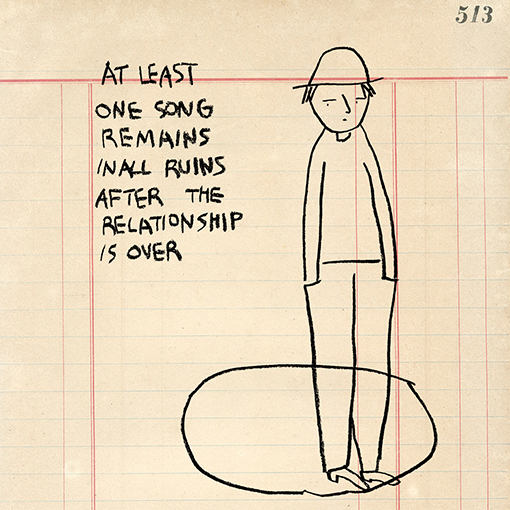 513
AT LEAST
ONE SONG
REMAINS
IN ALL RUINS
AFTER THE
RELATIONSHIP
IS OVER